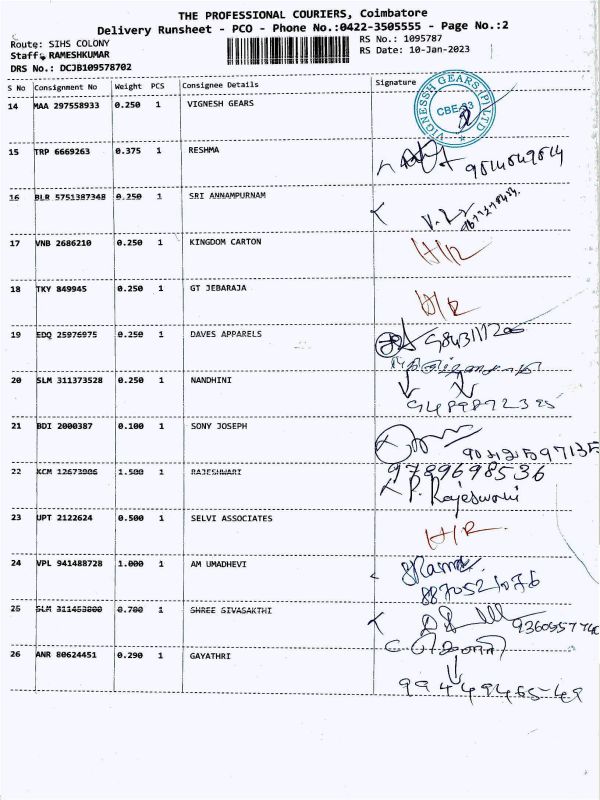 THE PROFESSIONAL COURIERS, Coimbatore
Delivery Runsheet - PCO - Phone No.:0422-3505555 - Page No.:2
Route: SIHS COLONY
RS No.: 1095787
Staff: RAMESHKUMAR
RS Date: 10-Jan-2023
DRS No.: DCJB109578702
S No Consignment No Weight PCS Consignee Details Signature
14 MAA 297558933 0.250 1 VIGNESH GEARS
VIGNESSH GEARS (P) LTD
CBE-33
15 TRP 6669263 0.375 1 RESHMA
16 BLR 5751387348 0.250 1 SRI ANNAMPURNAM
17 VNB 2686210 0.250 1 KINGDOM CARTON
18 TKY 849945 0.250 1 GT JEBARAJA
19 EDQ 25976975 0.250 1 DAVES APPARELS
20 SLM 311373528 0.250 1 NANDHINI
21 BDI 2000387 0.100 1 SONY JOSEPH
22 KCM 12673906 1.500 1 RAJESHWARI 9789698536
P. Rajeswari
23 UPT 2122624 0.500 1 SELVI ASSOCIATES
24 VPL 941488728 1.000 1 AM UMADHEVI
8870521076
25 SLM 311453800 0.700 1 SHREE SIVASAKTHI
26 ANR 80624451 0.290 1 GAYATHRI